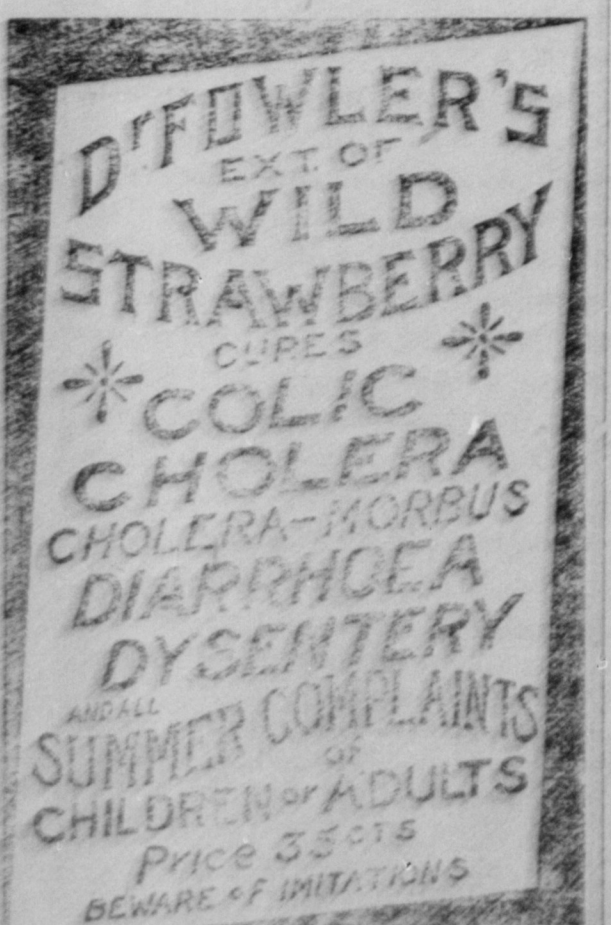 Dr FOWLER'S
EXT. OF
WILD
STRAWBERRY
CURES
COLIC
CHOLERA
CHOLERA-MORBUS
DIARRHOEA
DYSENTERY
AND ALL
SUMMER COMPLAINTS
OF
CHILDREN or ADULTS
Price 35 CTS
BEWARE OF IMITATIONS